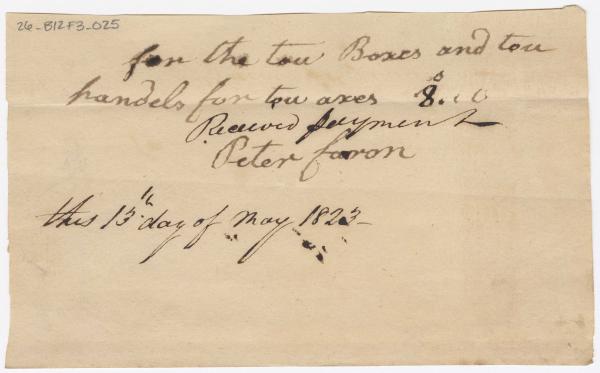 26-B12F3-025
for the tou Boxes and tou
handels for tou axes $8.00
Received payment
Peter Caron
this 13th day of May 1823